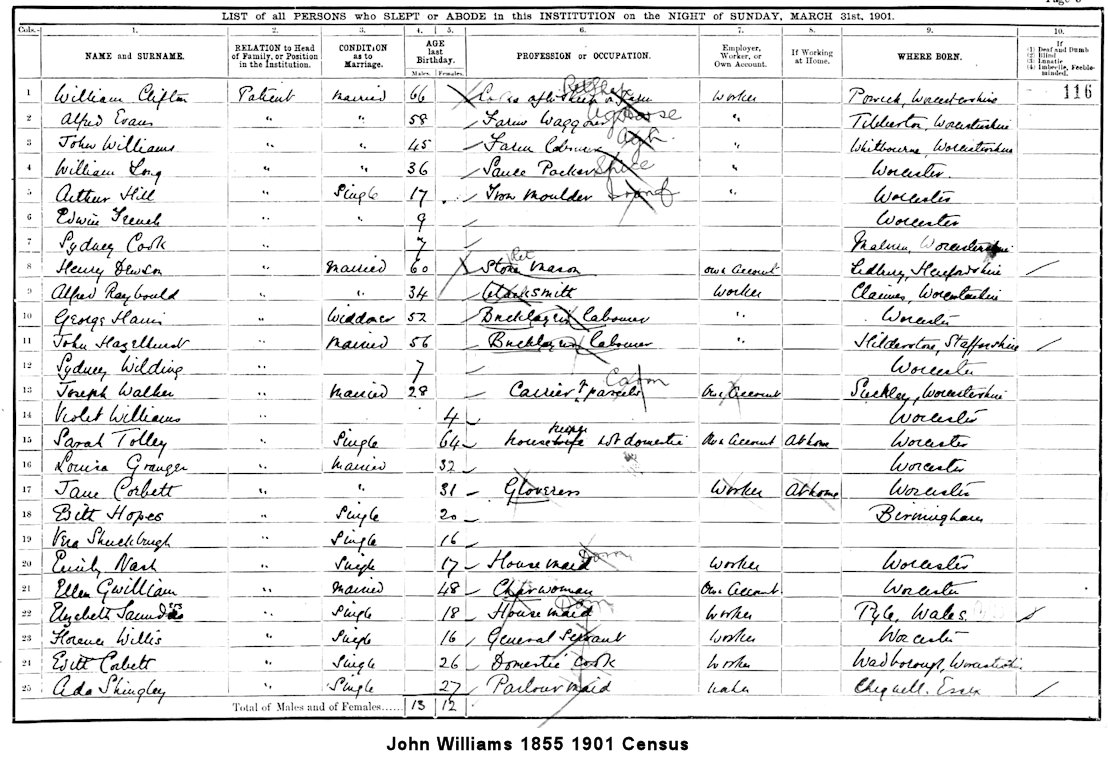 LIST of all PERSONS who SLEPT or ABODE in this INSTITUTION on the NIGHT of SUNDAY, MARCH 31st, 1901.
Cols.- 1. 2. 3. 4. 5. 6. 7. 8. 9. 10.
NAME and SURNAME. RELATION to Head of Family, or Position in the Institution. CONDITION as to Marriage. AGE last Birthday. Males. Females. PROFESSION or OCCUPATION. Employer, Worker, or Own Account. If Working at Home. WHERE BORN. If (1) Deaf and Dumb (2) Blind (3) Lunatic (4) Imbecile, Feeble-minded.
1 William Clifton Patient Married 66 Worker Powick, Worcestershire 116
2 Alfred Evans " " 58 Farm Waggoner " Tibberton, Worcestershire
3 John Williams " " 45 Farm Labourer " Whitbourne, Worcestershire
4 William Long " " 36 Sauce Packer " Worcester
5 Arthur Hill " Single 17 Iron Moulder " Worcester
6 Edwin French " 9 Worcester
7 Sydney Cook " 7 Malvern, Worcestershire
8 Henry Dewson " Married 60 Stone Mason Own Account Ledbury, Herefordshire
9 Alfred Raybould " " 34 Blacksmith Worker Claines, Worcestershire
10 George Harris " Widdower 52 Bricklayers Labourer " Worcester
11 John Hazelhurst " Married 56 Bricklayers Labourer " Hilderstone, Staffordshire
12 Sydney Wilding " 7 Worcester
13 Joseph Walker " Married 28 Carrier parcels Own Account Suckley, Worcestershire
14 Violet Williams " 4 Worcester
15 Sarah Tolley " Single 64 house keeper not domestic Own Account At home Worcester
16 Louisa Granger " Married 32 Worcester
17 Jane Corbett " " 31 Gloveress Worker At home Worcester
18 Edith Hopes " Single 20 Birmingham
19 Vera Shuckburgh " Single 16
20 Emily Nash " Single 17 Housemaid Worker Worcester
21 Ellen Gwilliam " Married 48 Charwoman Own Account Worcester
22 Elizabeth Saunders " Single 18 Housemaid Worker Pyle, Wales
23 Florence Willis " Single 16 General Servant Worker Worcester
24 Edith Corbett " Single 26 Domestic Cook Worker Wadborough, Worcestershire
25 Ada Shingley " Single 27 Parlour maid Worker Chigwell, Essex
Total of Males and of Females...... 13 12
John Williams 1855 1901 Census